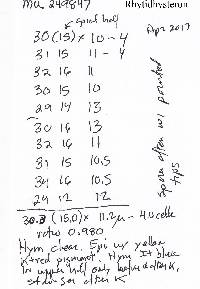 MU 249847
Rhytidhysteron
Apr 2017
spiral half
30 (15) x 10 - 4
31 15 11 - 4
32 16 11
30 15 10
29 14 13
30 16 13
32 16 11
31 15 10.5
34 16 10.5
24 12 12
30.3 (15.0) x 11.2µ - 4 cells
ratio 0.980
Hym clear. Epi w/ yellow
& red pigment. Hym It blue
in upper half only before after K,
stronger after K
Spores often w/ pointed
tips